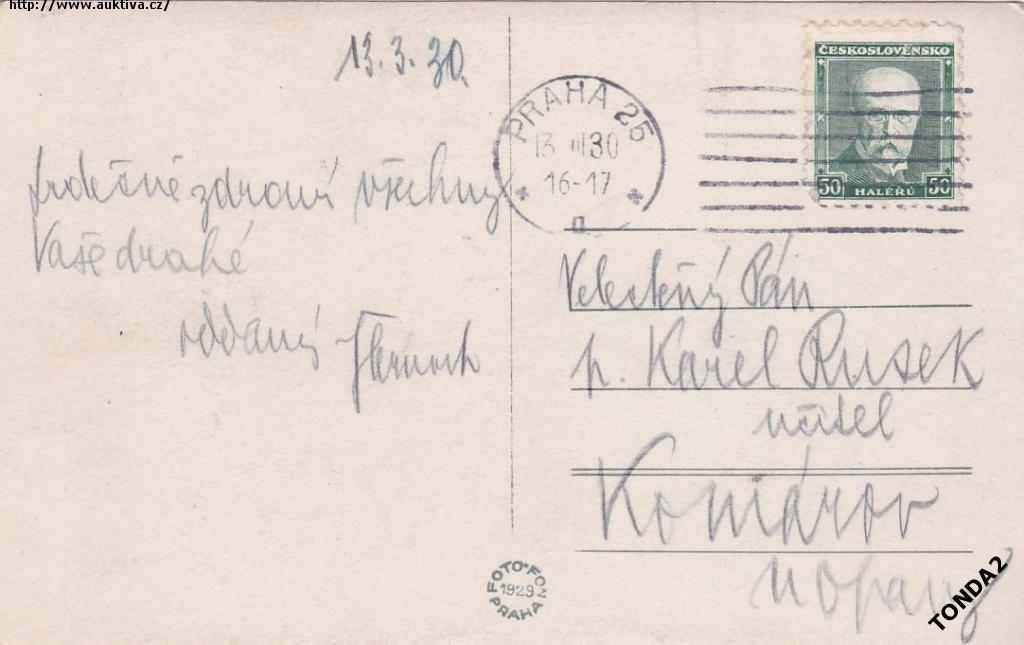 http://www.auktiva.cz/
13.3.30.
ČESKOSLOVENSKO
50 HALÉŘŮ 50
PRAHA 25
13 III 30
16-17
Srdečně zdraví všechny
Vaše drahé
oddaný
Velectěný Pán
p. Karel Rusek
učitel
Komárov
u Opavy
FOTO-FON
1929
PRAHA
TONDA2